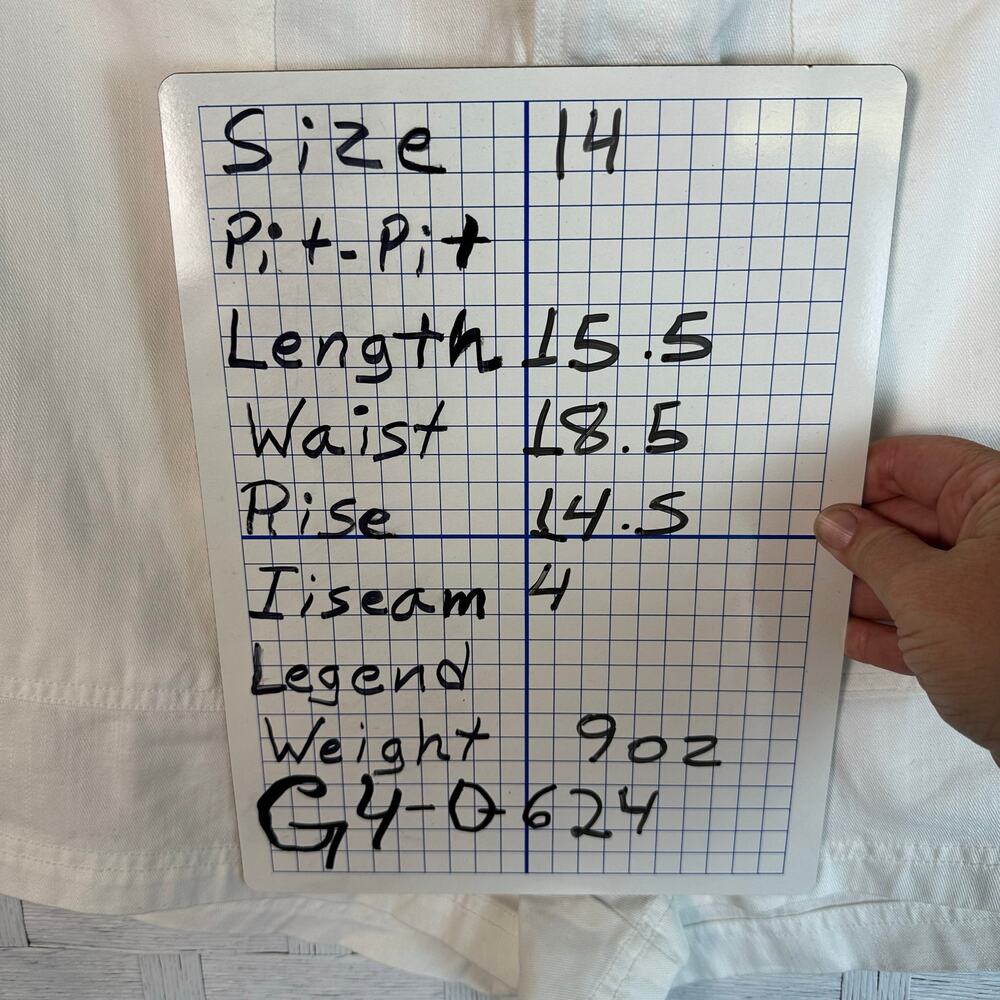 Size 14
Pit-Pit
Length 15.5
Waist 18.5
Rise 14.5
Iiseam 4
Legend
Weight 9oz
G4-0624